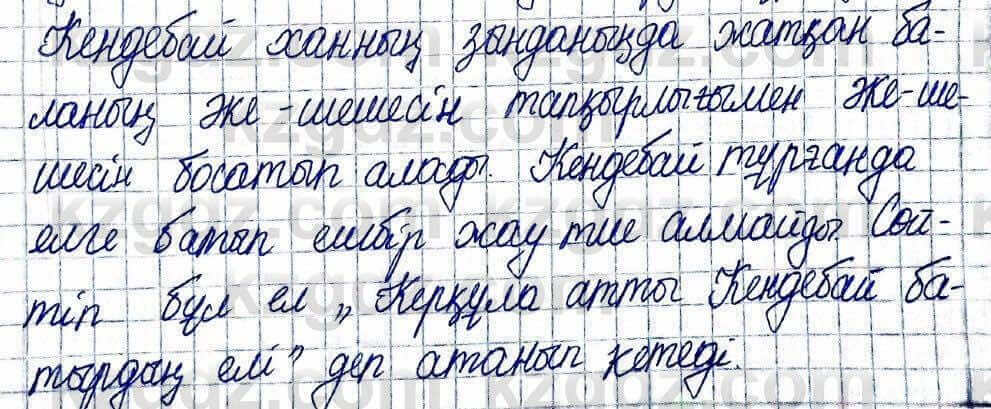 Кендебай ханның зынданында жатқан ба-
ланың әке-шешесін тапқырлығымен әке-ше-
шесін босатып алады. Кендебай тұрғанда
елге батып ешбір жау тие алмайды. Сөй-
тіп бұл ел „Керқұла атты Кендебай ба-
тырдың елі" деп атанып кетеді.